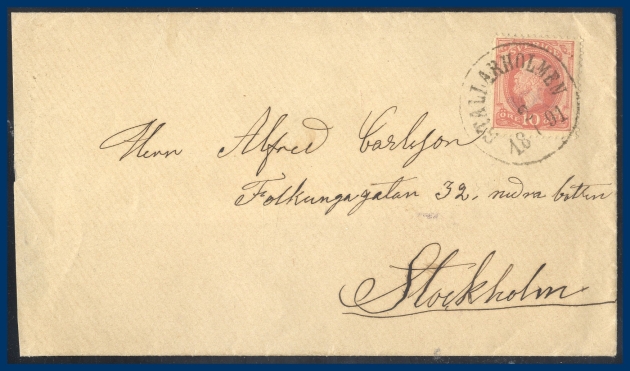 STALLARHOLMEN
18 91
ÖRE 10
Herrn Alfred Carlsson
Folkungagatan 32, nedra botten
Stockholm